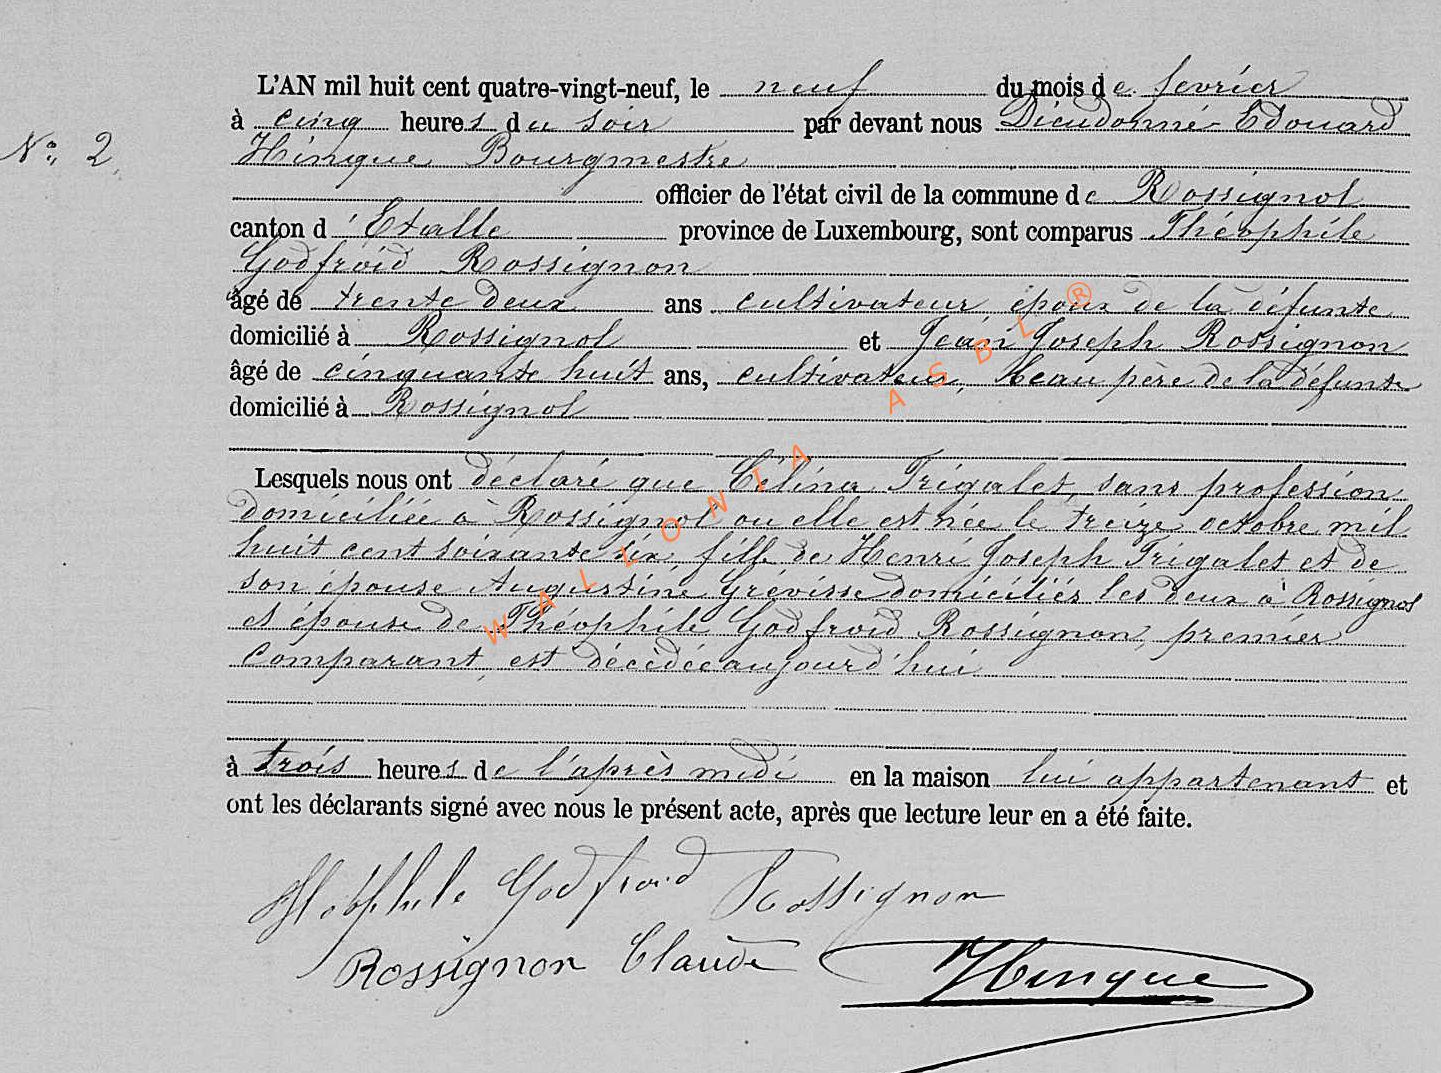 L'AN mil huit cent quatre-vingt-neuf, le neuf du mois de fevrier
à cinq heures du soir par devant nous Dieudonné Edouard
N° 2, Hinque Bourgmestre
officier de l'état civil de la commune de Rossignol
canton d'Etalle province de Luxembourg, sont comparus Théophile
Godfroid Rossignon
âgé de trente deux ans cultivateur, époux de la défunte
domicilié à Rossignol et Jean Joseph Rossignon
âgé de cinquante huit ans, cultivateur, beau père de la défunte
domicilié à Rossignol
Lesquels nous ont déclaré que Célina Trigalet, sans profession
domiciliée à Rossignol ou elle est née le treize octobre mil
huit cent soixante six, fille de Henri Joseph Trigalet et de
son épouse Augustine Grévisse domiciliés les deux à Rossignol
et épouse de Théophile Godfroid Rossignon, premier
comparant, est décédée aujourd'hui
à trois heures de l'après midi en la maison lui appartenant et
ont les déclarants signé avec nous le présent acte, après que lecture leur en a été faite.
Godfroid Rossignon
Rossignon Claude Hinque
WALLONIA ASBL ®